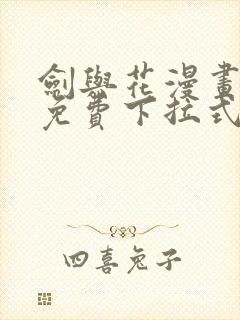 劍與花漫畫
免費下拉式
四喜兔子